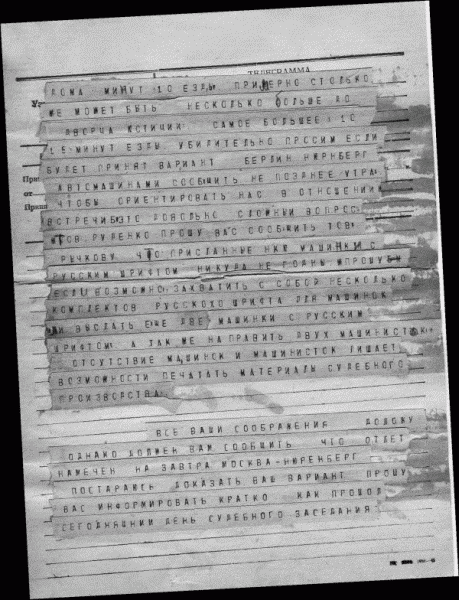 ТЕЛЕГРАММА
ДОМА МИНУТ 10 ЕЗДЫ ПРИМЕРНО СТОЛЬКО
ЖЕ МОЖЕТ БЫТЬ НЕСКОЛЬКО БОЛЬШЕ ДО
ДВОРЦА ЮСТИЦИИ САМОЕ БОЛЬШЕЕ 10
15 МИНУТ ЕЗДЫ УБЕДИТЕЛЬНО ПРОСИМ ЕСЛИ
БУДЕТ ПРИНЯТ ВАРИАНТ БЕРЛИН НЮРНБЕРГ
АВТОМАШИНАМИ СООБЩИТЬ НЕ ПОЗДНЕЕ УТРА
ЧТОБЫ ОРИЕНТИРОВАТЬ НАС В ОТНОШЕНИИ
ВСТРЕЧИ ЭТО ДОВОЛЬНО СЛОЖНЫЙ ВОПРОС
РУДЕНКО ПРОШУ ВАС СООБЩИТЬ ТОВ
РЫЧКОВУ ЧТО ПРИСЛАННЫЕ НКЮ МАШИНКИ С
РУССКИМ ШРИФТОМ НИКУДА НЕ ГОДНЫ ПРОШУ
ЕСЛИ ВОЗМОЖНО ЗАХВАТИТЬ С СОБОЙ НЕСКОЛЬКО
КОМПЛЕКТОВ РУССКОГО ШРИФТА ДЛЯ МАШИНОК
ИЛИ ВЫСЛАТЬ ЕЩЕ ДВЕ МАШИНКИ С РУССКИМ
ШРИФТОМ А ТАК ЖЕ НАПРАВИТЬ ДВУХ МАШИНИСТОК
ОТСУТСТВИЕ МАШИНОК И МАШИНИСТОК ЛИШАЕТ
ВОЗМОЖНОСТИ ПЕЧАТАТЬ МАТЕРИАЛЫ СУДЕБНОГО
ПРОИЗВОДСТВА
ВСЕ ВАШИ СООБРАЖЕНИЯ ДОЛОЖУ
ОДНАКО ДОЛЖЕН ВАМ СООБЩИТЬ ЧТО ОТЛЕТ
НАМЕЧЕН НА ЗАВТРА МОСКВА-НЮРЕНБЕРГ
ПОСТАРАЮСЬ ДОКАЗАТЬ ВАШ ВАРИАНТ ПРОШУ
ВАС ИНФОРМИРОВАТЬ КРАТКО КАК ПРОШОЛ
СЕГОДНЯШНИЙ ДЕНЬ СУДЕБНОГО ЗАСЕДАНИЯ